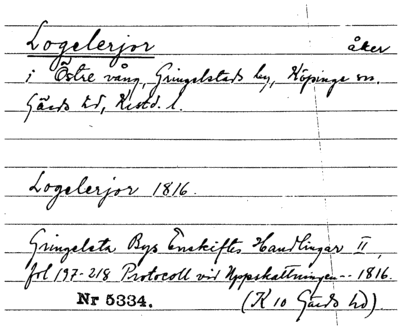 Logelerjor åker
i Östre vång, Gringelstads by, Köpinge sn.
Gärds hd, Kistd. l.
Logelerjor 1816.
Gringelsta Bys Enskiftes Handlingar II,
fol 197-218 Protocoll vid Uppskattningen -- 1816.
Nr 5334. (K 10 Gärds hd).